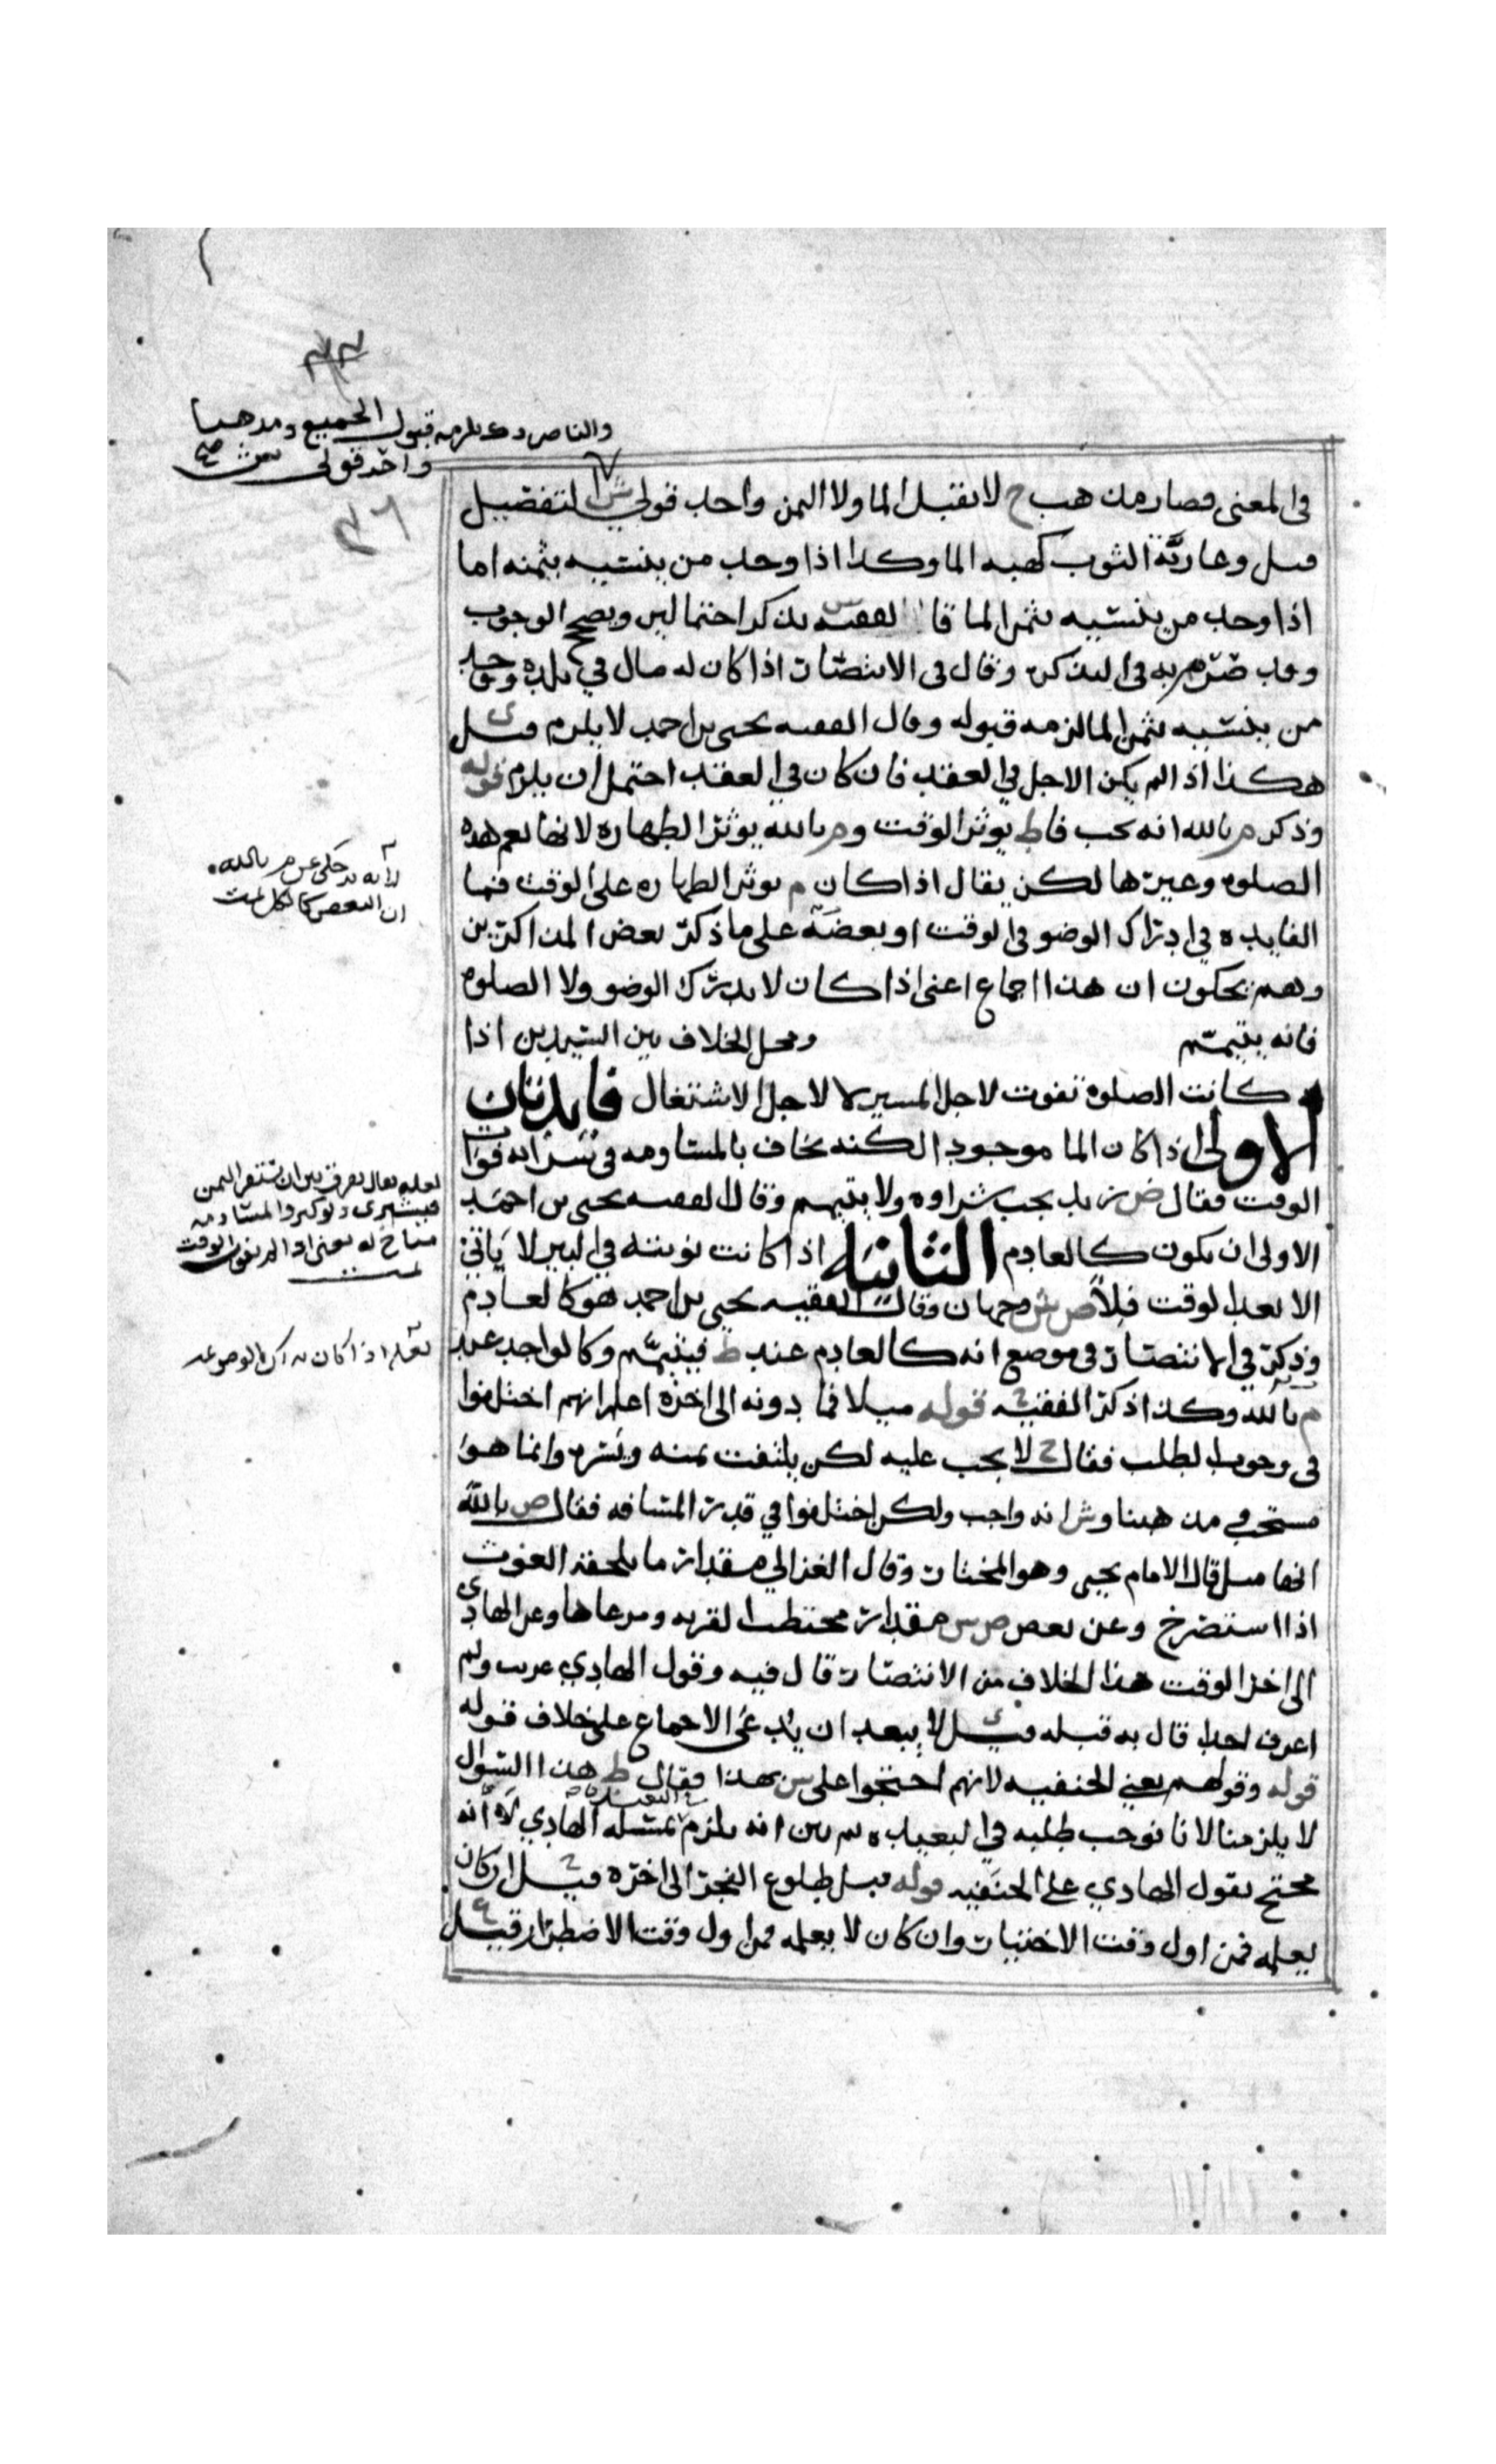 والناصر و ك يلزمه قبول الجميع ومذهبنا
واحد قولي ش
في المعنى فصار مذهب ح لا يقبل الما ولا الثمن واحد قولي ش التفصيل
قيل وعارية الثوب كهبة الما وكذا اذا وجد من ينسيه بثمنه اما
اذا وجد من ينسيه بثمن الما قا الفقيه يذكر احتمالين ويصحح الوجوب
وقد به في التذكره وقال في الانتصار اذا كان له مال في بلده ووجد
من ينسيه بثمن الما لزمه قبوله وقال الفقيه يحيى بن احمد لا يلزم قيل
هكذا اذا لم يكن الاجل في العقد فان كان في العقد احتمل ان يلزم قوله
وذكر م بالله انه يجب فا ط يوثر الوقت و م بالله يوثر الطهاره لانها تعم هذه
الصلوه وغيرها لكن يقال اذا كان م يوثر الطهاره على الوقت فما
الفايده في ادراك الوضو في الوقت او بعضه على ما ذكره بعض المذاكرين
وهم يحكون ان هذا اجماع اعني اذا كان لا يدرك الوضو ولا الصلوه
فانه يتيمم ومحل الخلاف بين السيدين اذا
كانت الصلوه تفوت لاجل المسير لا لاجل الاشتغال فايدتان
الاولى اذا كان الما موجودا لكنه يخاف بالمساومه في شرائه فوات
الوقت فقال ض زيد يجب شراوه ولا يتيمم وقال الفقيه يحيى بن احمد
الاولى ان يكون كالعادم الثانيه اذا كانت نوبته في البير لا ياتي
الا بعد الوقت فلا ص ش وجهان وقال الفقيه يحيى بن احمد هو كالعادم
وذكر في الانتصار في موضع انه كالعادم عند ط فيتيمم وكالواجد عند
م بالله وكذا ذكر الفقيه قوله ميلا فما دونه الى اخره اعلم انهم اختلفوا
في وجوب الطلب فقال ح لا يجب عليه لكن يلتفت يمنه ويسره وانما هو
مستحب ومذهبنا و ش انه واجب ولكن اختلفوا في قدر المسافه فقال ص بالله
انها ميل قال الامام يحيى وهو المختار وقال الغزالي مقدار ما يلحقه الغوث
اذا استصرخ وعن بعض ص ش مقدار محتطب القريه ومرعاها وعن الهادي
الى اخر الوقت هذا الخلاف من الانتصار قال فيه وقول الهادي غريب ولم
اعرف احدا قال به قبله قيل لا يبعد ان يدعى الاجماع على خلاف قوله
قوله وقولهم يعني الحنفيه لانهم احتجوا على ش بهذا فقال ط هذا السوال
لا يلزمنا لانا نوجب طلبه في البعيد انه يلزم الهادي لانه
محتج بقول الهادي على الحنفيه قوله قبل طلوع الفجر الى اخره قيل ان كان
يعلمه فمن اول وقت الاختيار وان كان لا يعلمه فمن اول وقت الاضطرار قيل
لانه قد حكى عن م بالله
ان البعض كالكل تمت
لعله يقال يفرق بين ان يستقر الثمن
له يعني اذا لم يفوت الوقت
لعله اذا كان يدرك الوضو